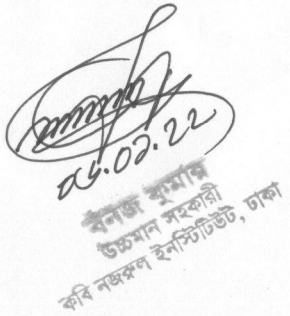 ০৬.০২.২২
বনজ কুমার
উচ্চমান সহকারী
কবি নজরুল ইনস্টিটিউট, ঢাকা